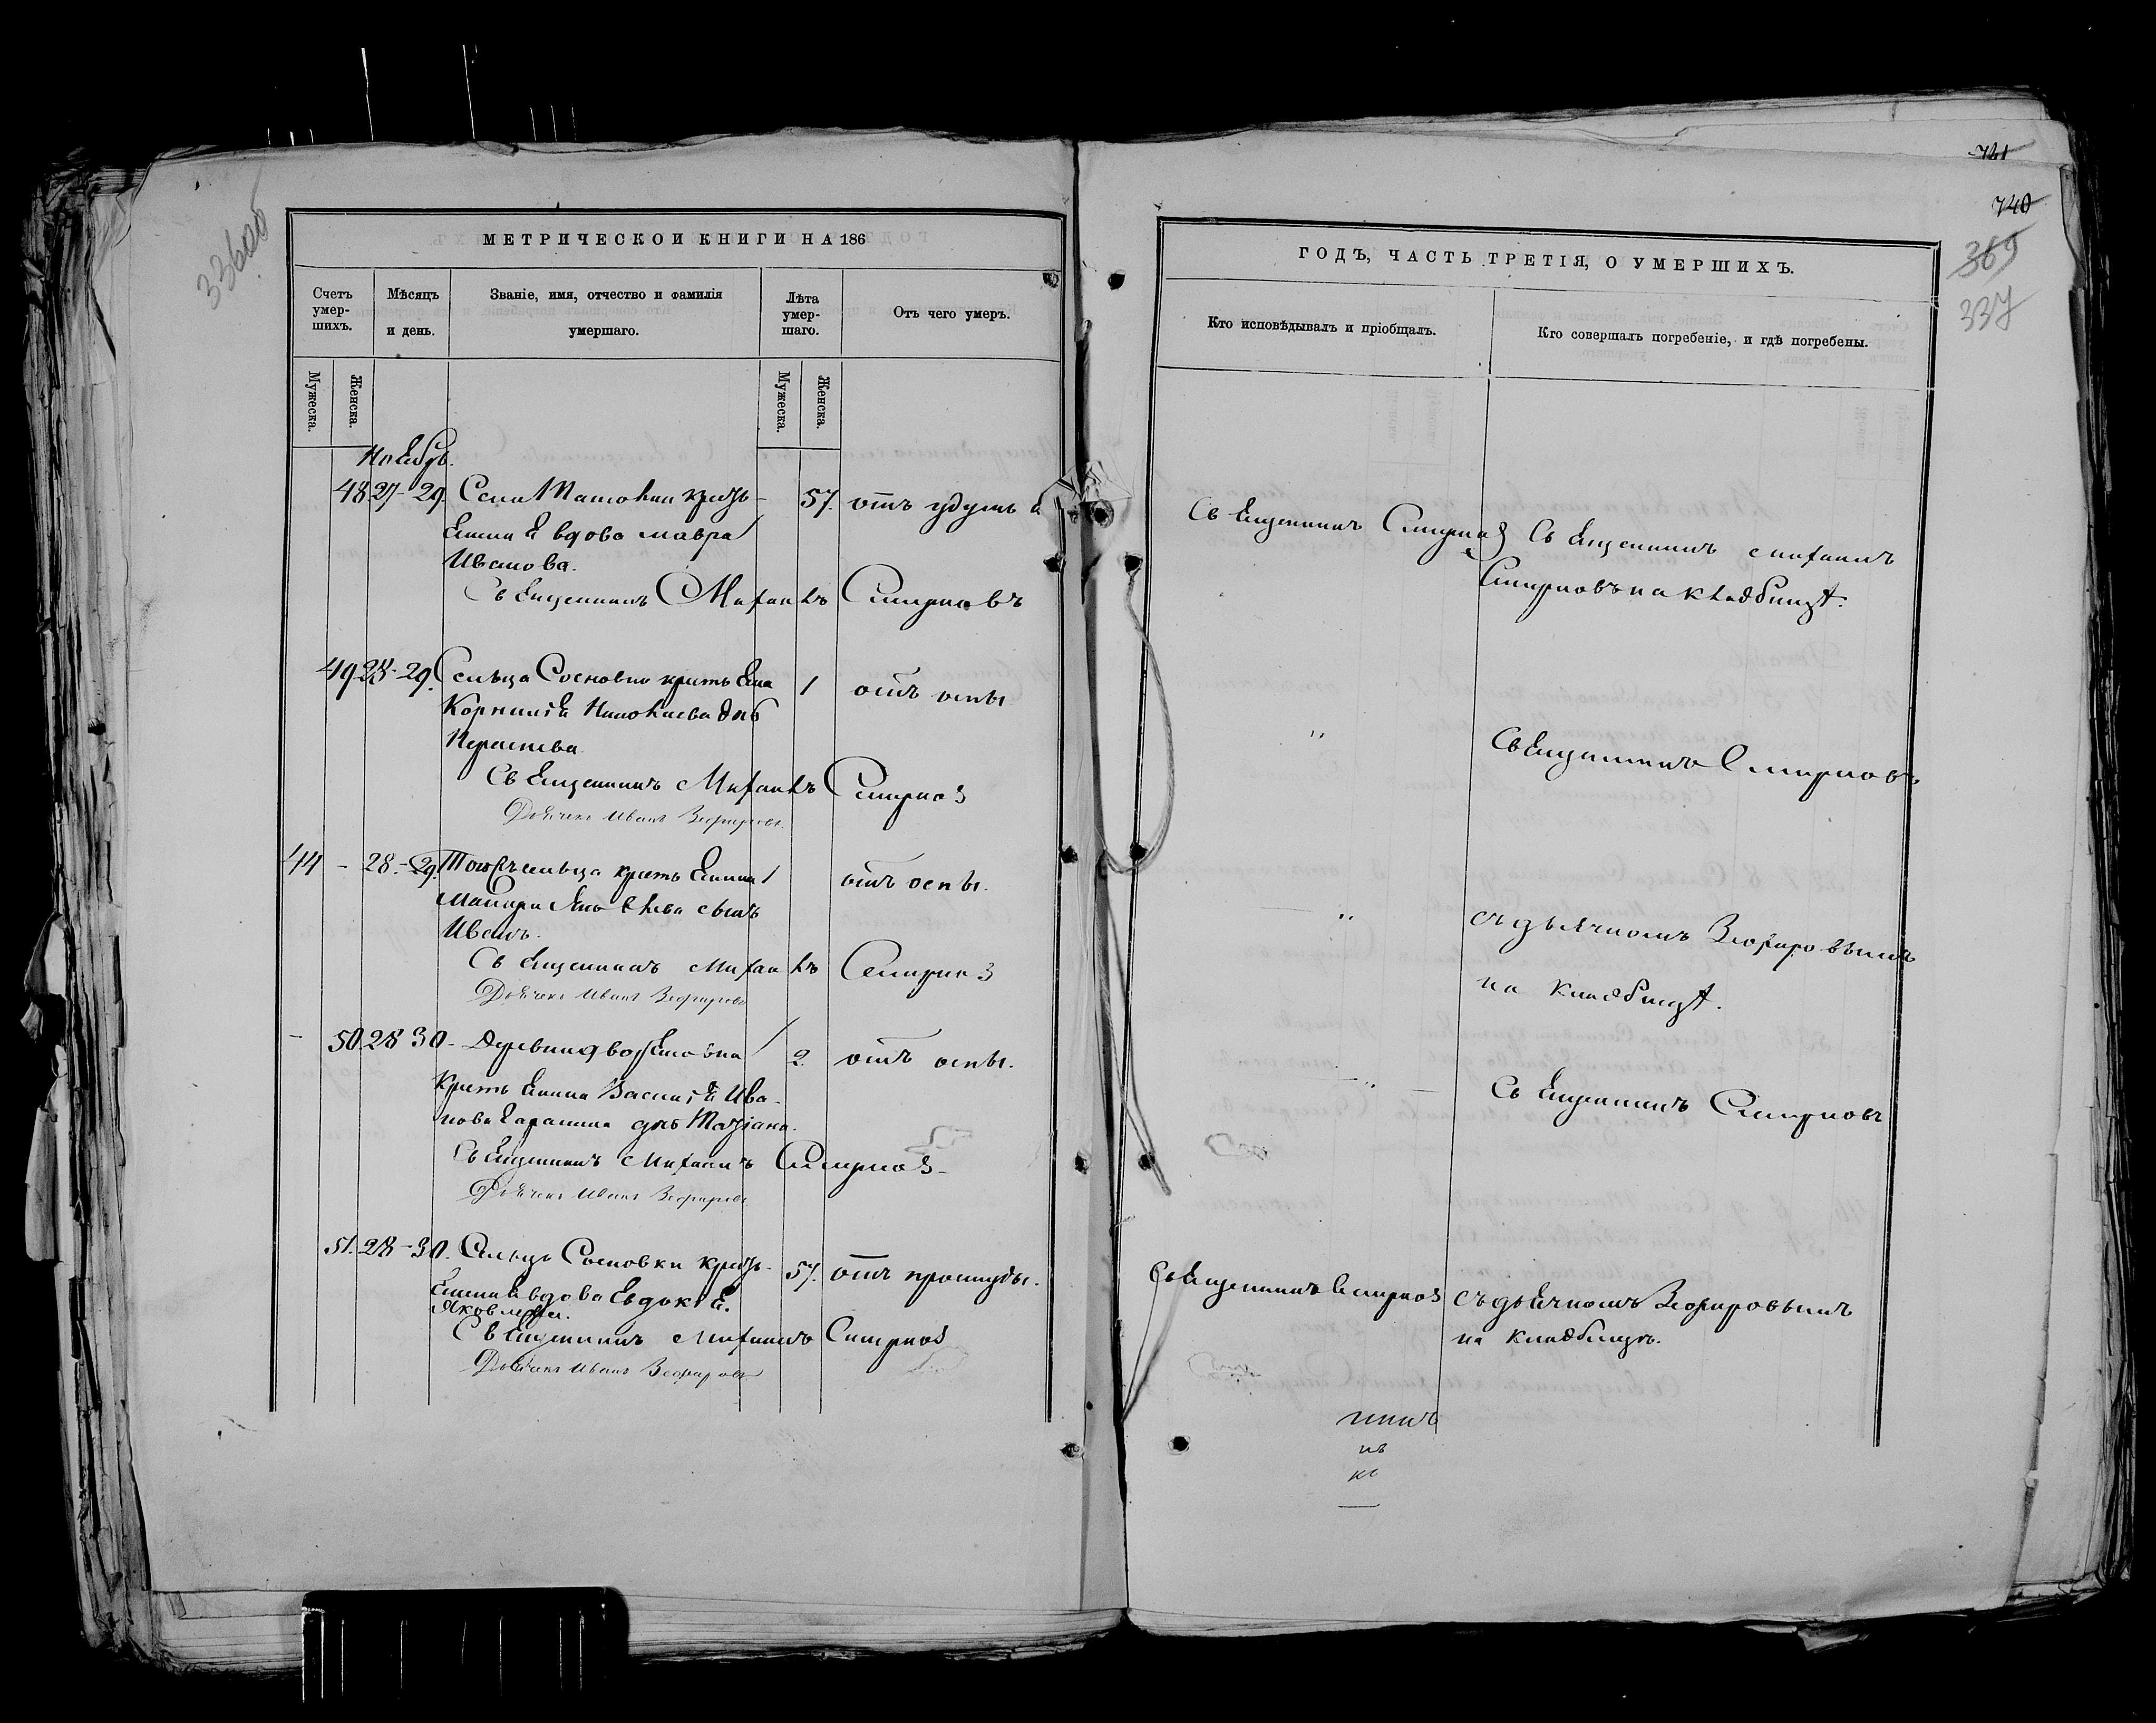 336об
721
740
369
337
МЕТРИЧЕСКОЙ КНИГИ НА 186
ГОДЪ, ЧАСТЬ ТРЕТІЯ, О УМЕРШИХЪ.
Счетъ умер-шихъ.
Мѣсяцъ и день.
Званіе, имя, отчество и фамилія умершаго.
Лѣта умер-шаго.
Отъ чего умеръ.
Кто исповѣдывалъ и пріобщалъ.
Кто совершалъ погребеніе, и гдѣ погребены.
Мужеска.
Женска.
Мужеска.
Женска.
Ноябрь.
48 27-29. Села кресть- 57. отъ удушья
янина вдова Мавра
Иванова.
Священникъ Михаилъ Смирновъ
Священникъ Смирновъ Священникъ Михаилъ
Смирновъ на кладбищѣ.
49 28-29. Сельца Сосновки крестьянина 1 отъ оспы
Корнилія дочь
Священникъ Михаилъ Смирновъ
Дьячекъ Иванъ Зефировъ
" Священникъ Смирновъ
44 - 28-29. Тогожъ сельца крестьянина 1 отъ оспы.
Яковлева сынъ
Иванъ.
Священникъ Михаилъ Смирновъ
Дьячекъ Иванъ Зефировъ
" съ дьячкомъ Зефировымъ
на кладбищѣ.
- 50. 28 30. Деревни 2. отъ оспы.
крестьянина Василія Ива-
нова дочь Татіана.
Священникъ Михаилъ Смирновъ
Дьячекъ Иванъ Зефировъ
" Священникъ Смирновъ
51. 28-30. Сельца Сосновки кресть- 57. отъ простуды.
янина вдова Евдокія
Яковлева.
Священникъ Михаилъ Смирновъ
Дьячекъ Иванъ Зефировъ
Священникъ Смирновъ съ дьячкомъ Зефировымъ
на кладбищѣ.